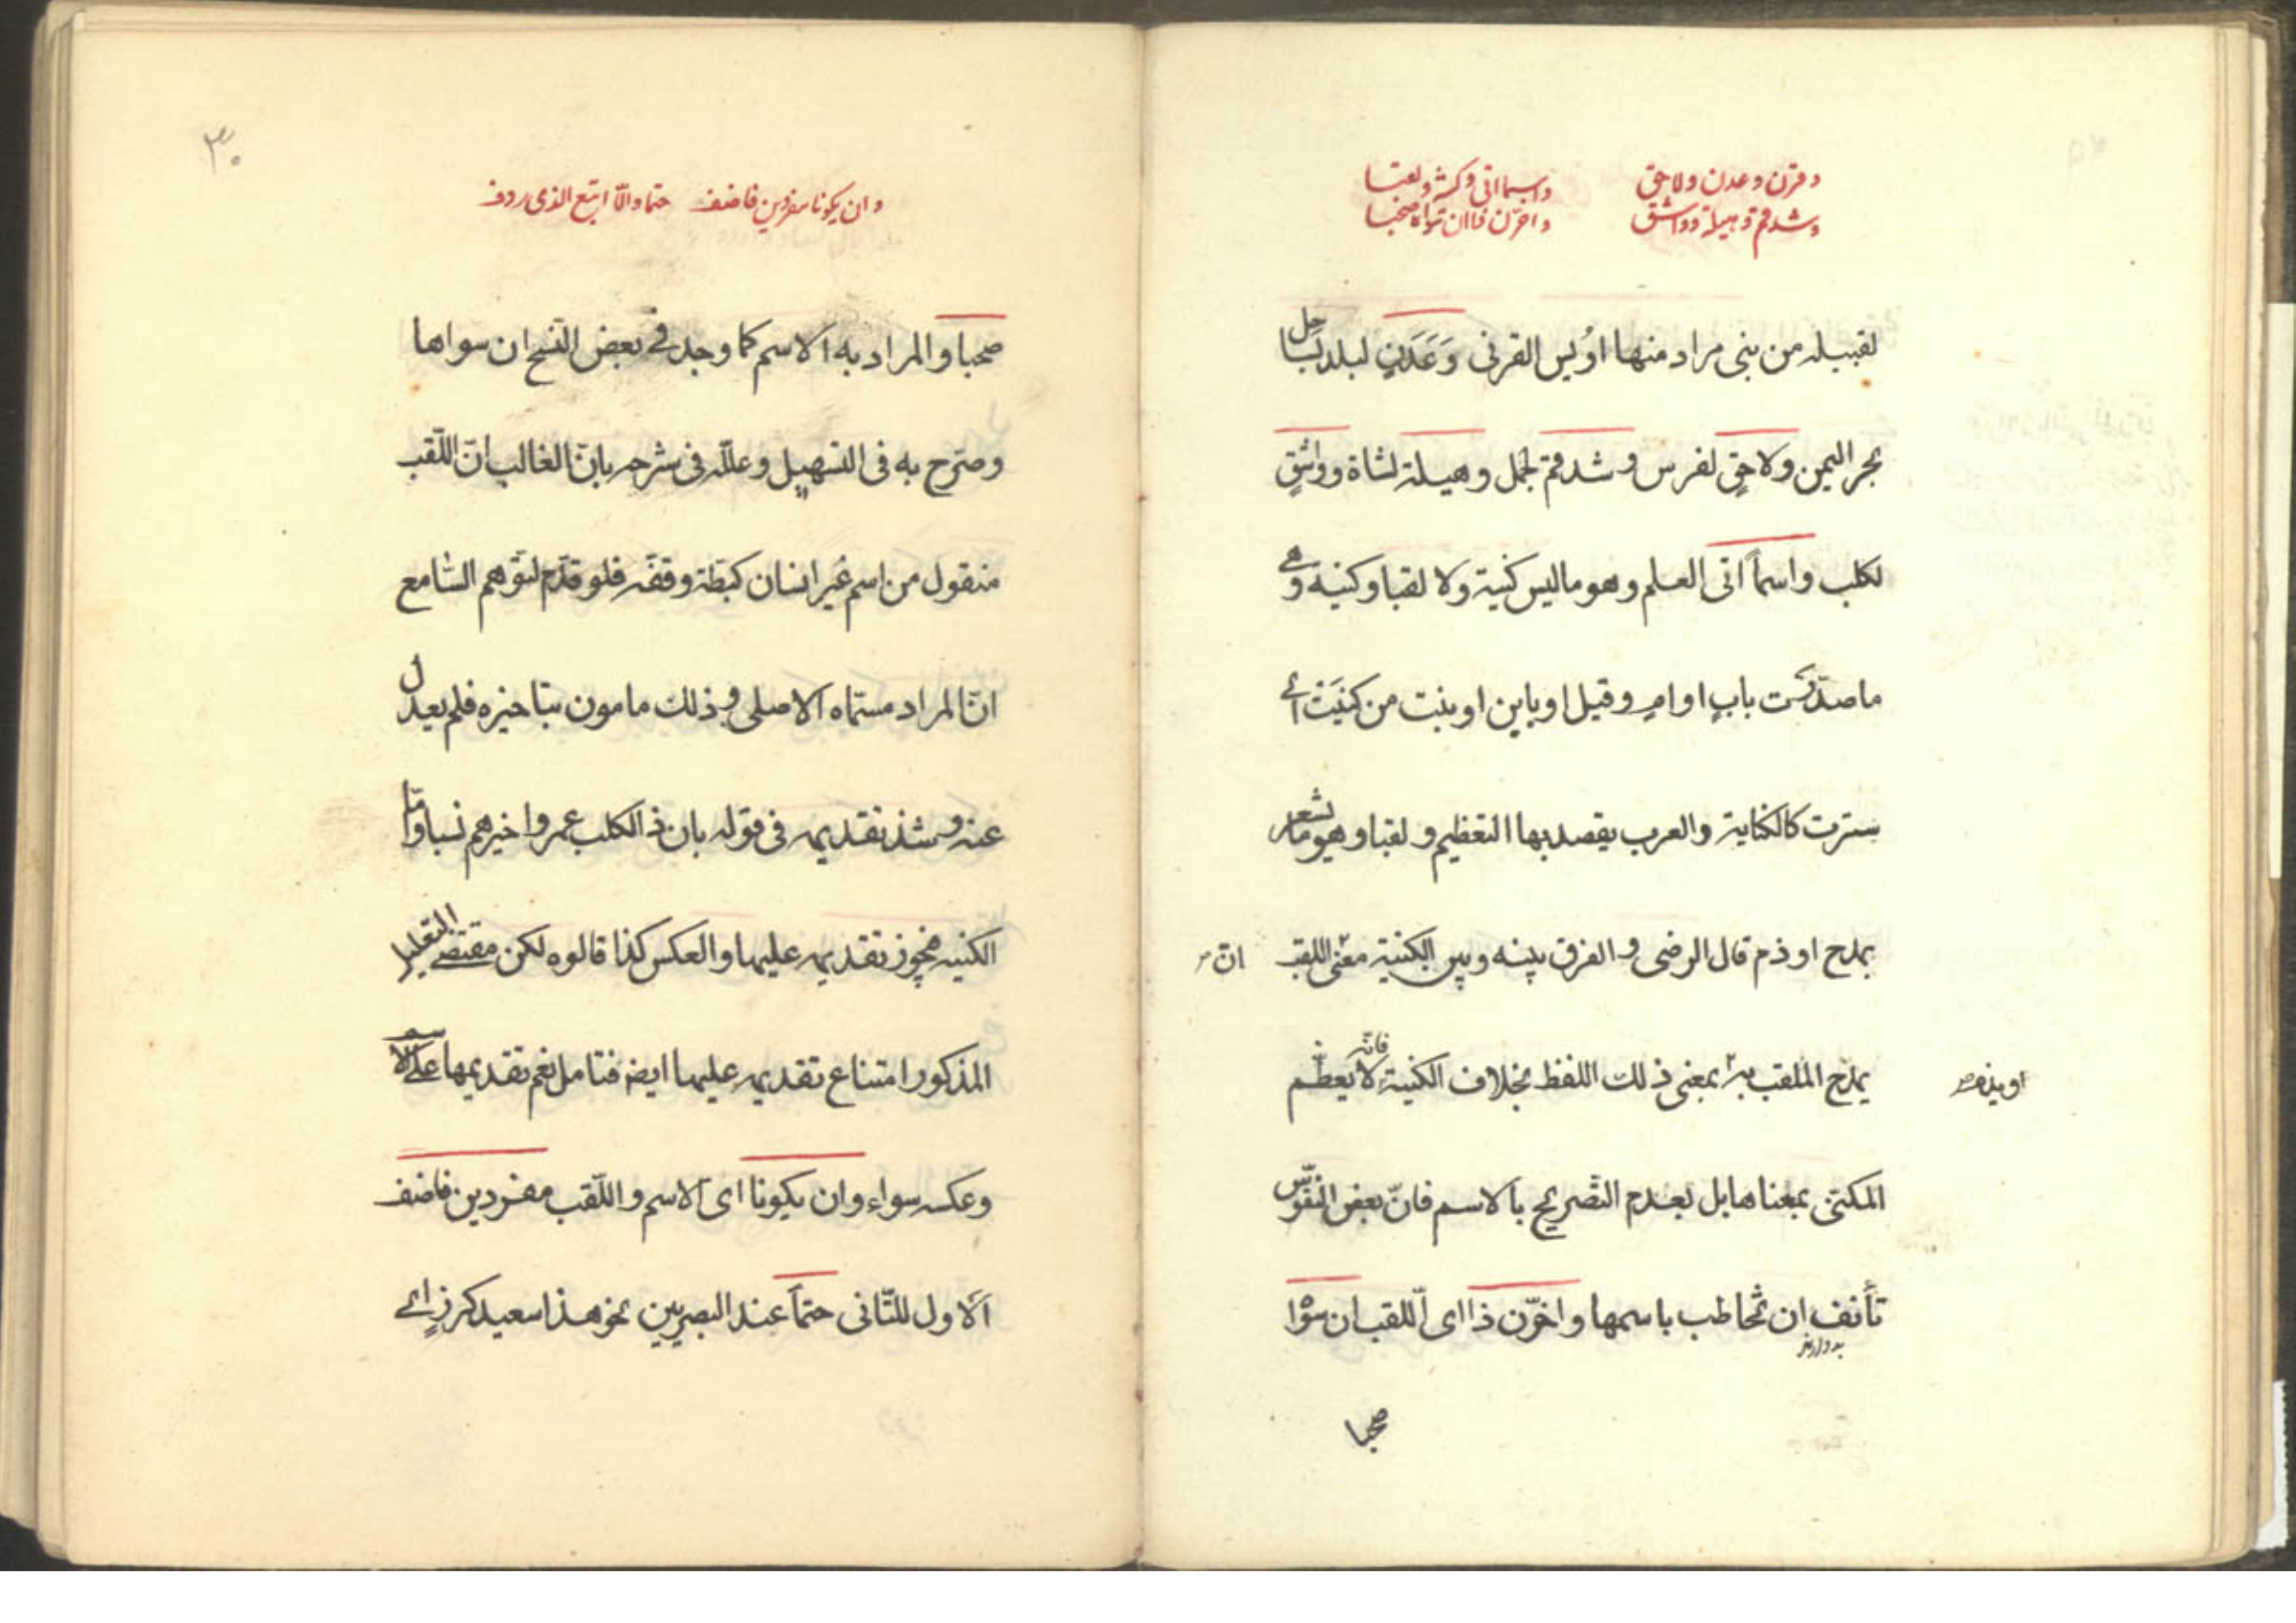 وقرن وعدن ولاحق
وشذقم وهيلة وواشق
واسما اتى وكنية ولقبا
واخرن ذا ان سواه صحبا
لقبيلة من بنى مراد منها اوُيس القرنى وَعَدَنٍ لبلد بساحل
بحر اليمن ولاحقٍ لفرس وشدقم لجمل وهيلة لشاة وواشقٍ
لكلب واسماً اتى العلم وهو ما ليس كنية ولا لقبا وكنية وهى
ما صدّرت بابٍ او امٍ وقيل او بابن او بنت من كنَيَت اى
سترت كالكناية والعرب يقصد بها التعظيم ولقبا وهو ما يشعر
بمدح او ذم قال الرضى و الفرق بينه وبين الكنية معنى اللقب
ان
يمدح الملقب به بمعنى ذلك اللفظ بخلاف الكنية فانّه لا يعظّم
او يذم
المكنى بمعناها بل بعدم التصريح بالاسم فانّ بعض النفوس
تأنف ان تخاطب باسمها واخّرن ذا اى اللقب ان سواه
صحبا
٣٠
وان يكونا مفردين فاضف حتما والّا اتبع الذى ردف
صحبا والمراد به الاسم كما وجد فى بعض النسخ ان سواها
وصرّح به فى التسهيل وعلّله فى شرحه بانّ الغالب انّ اللّقب
منقول من اسم غير انسان كبطة وقفة فلو قدّم لتوهم السامع
انّ المراد مسمّاه الاصلى و ذلك مامون بتاخيره فلم يعدل
عنه وشذ تقديمه فى قوله بان ذا الكلب عمروا خيرهم نسبا وامّا
الكنيه فيجوز تقديمه عليها والعكس كذا قالوه لكن مقتضى التعليل
المذكور امتناع تقديمه عليها ايضا فتامل نعم تقديمها على الاسم
وعكسه سواء وان يكونا اى الاسم واللّقب مفردين فاضف
الاول للثّانى حتماً عند البصريين نحو هذا سعيد كرزٍ اى